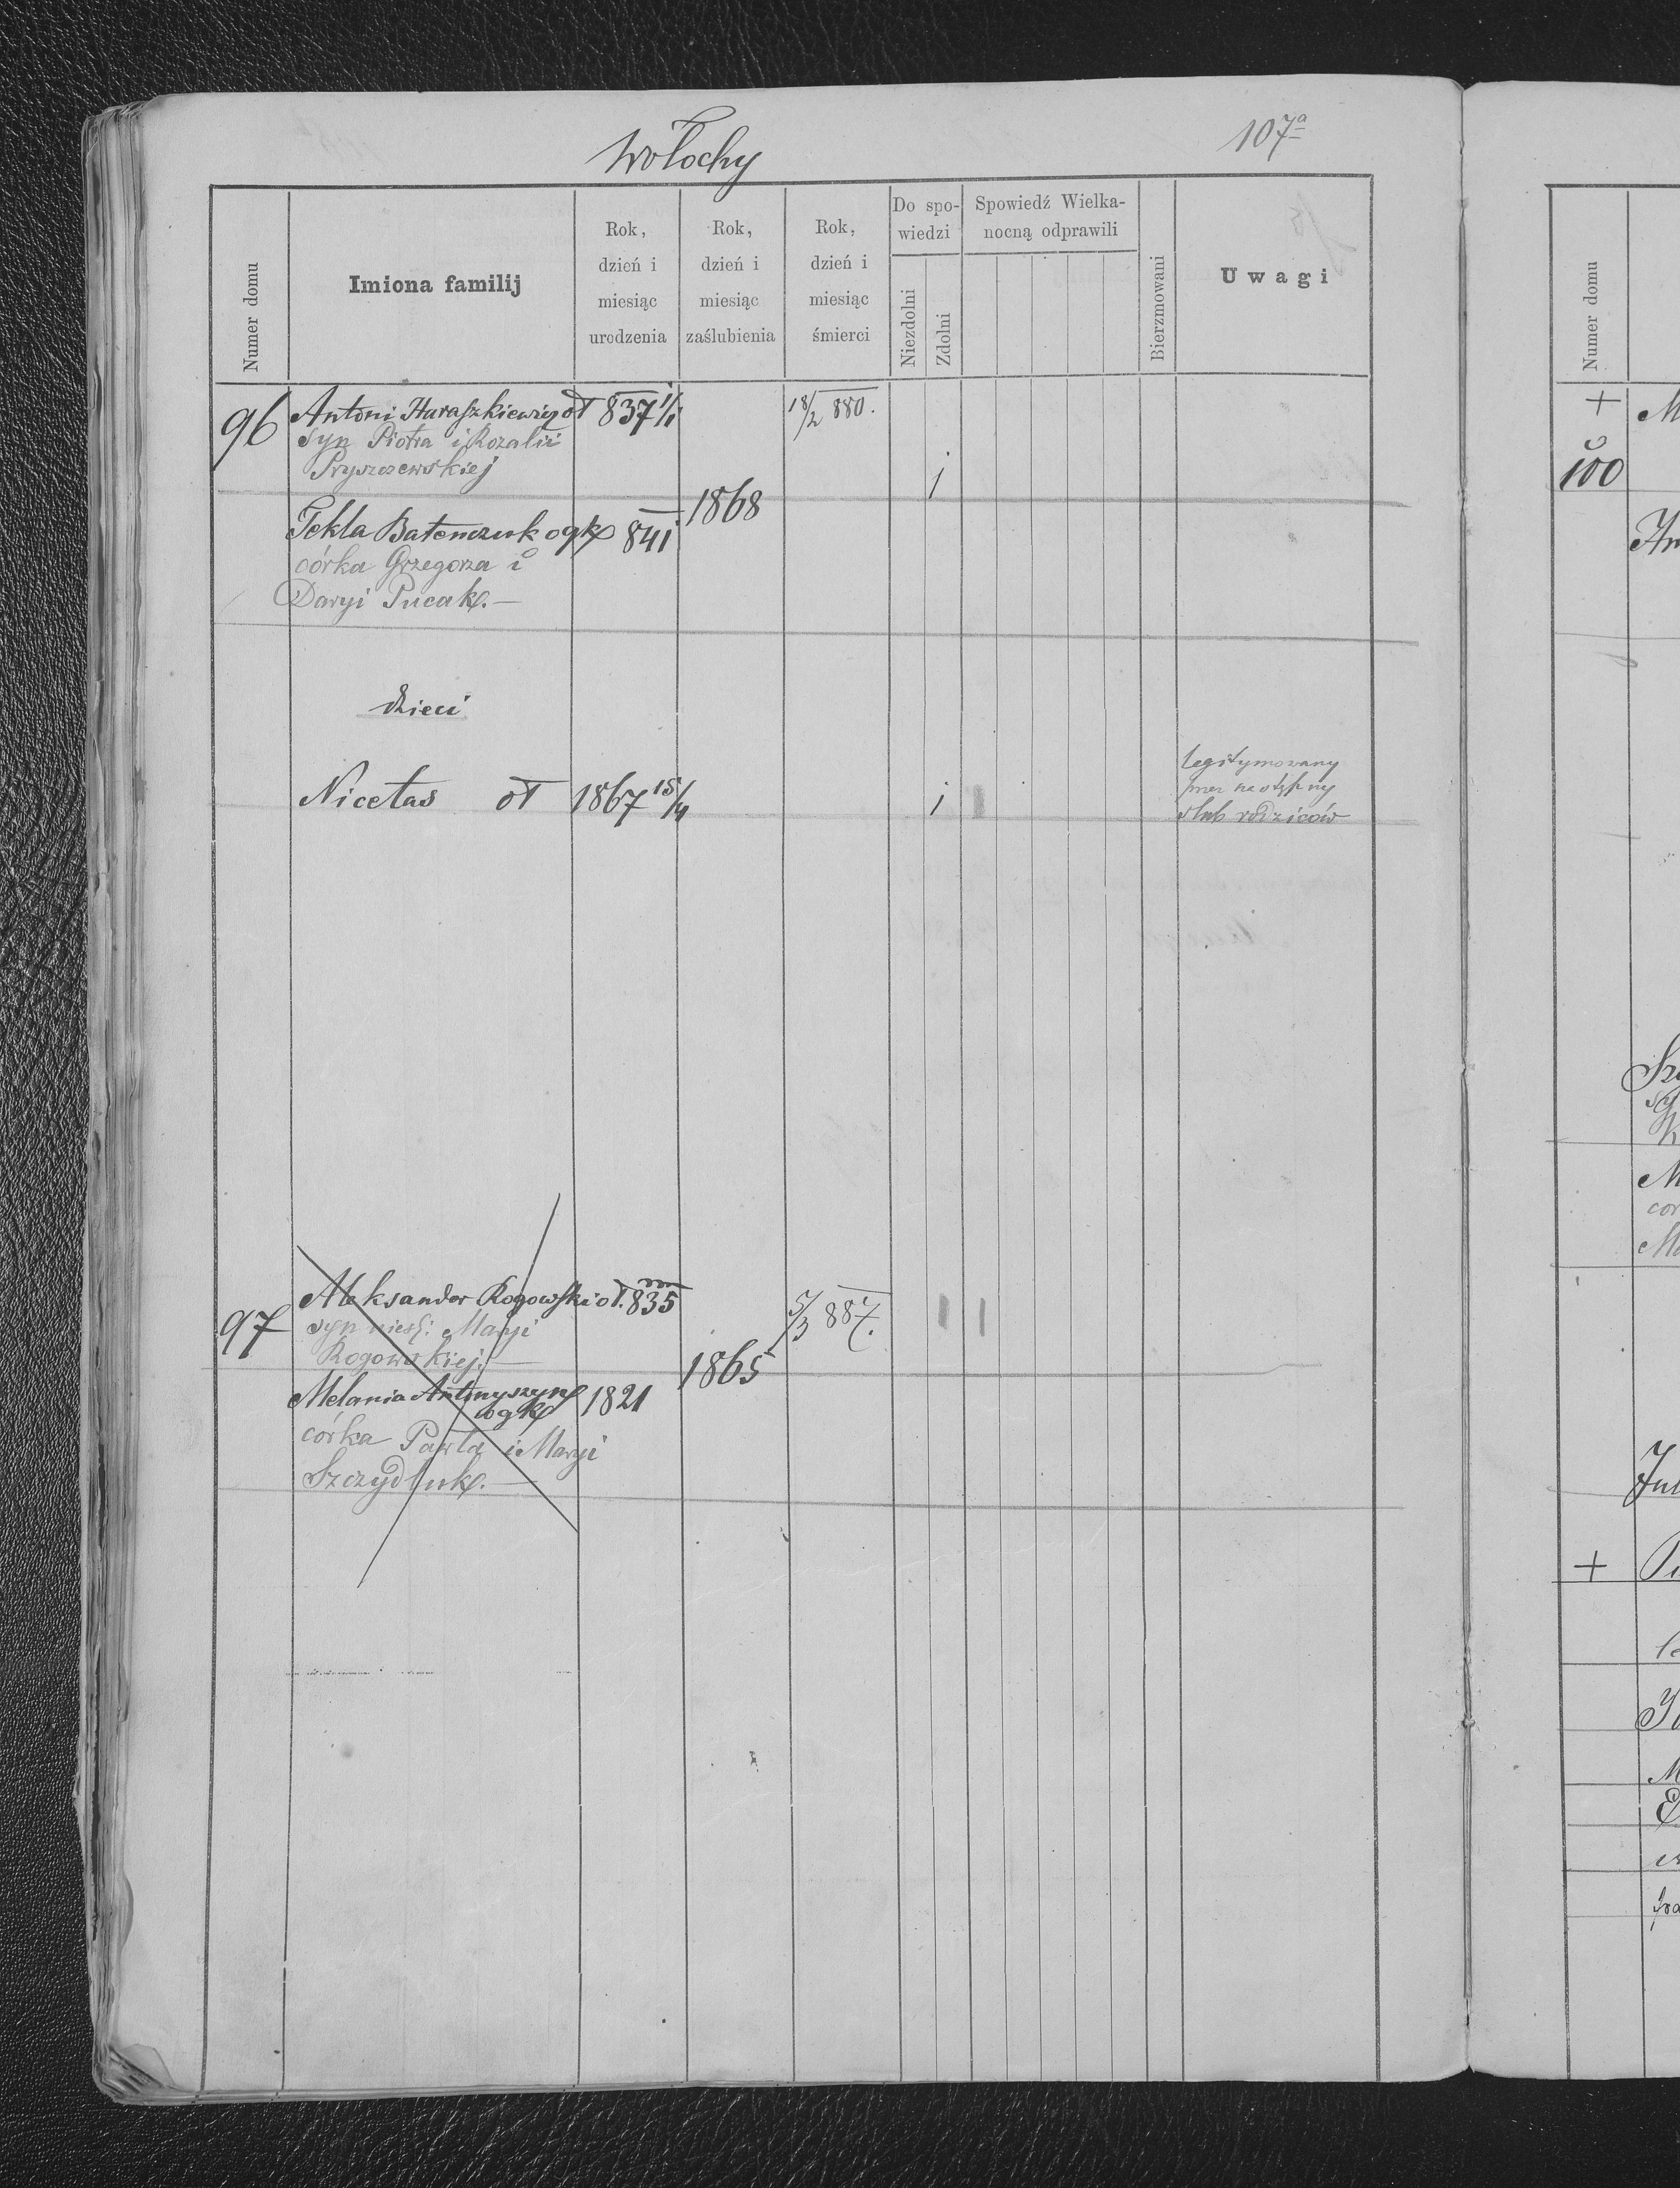 Wołochy
107a
Numer domu
Imiona familij
Rok,
dzień i
miesiąc
urodzenia
Rok,
dzień i
miesiąc
zaślubienia
Rok,
dzień i
miesiąc
śmierci
Do spo-
wiedzi
Niezdolni
Zdolni
Spowiedź Wielka-
nocną odprawili
Bierzmowani
Uwagi
96 Antoni Haraszkiewicz ot 837 1/1 18/2 880.
syn Piotra i Rozalii
Pryszczewskiej 1
1868
Tekla Batenczuk ogk 841
córka Grzegorza i
Daryi Pucak.—
dzieci
Nicetas ot 1867 15/4 1
legitymowany
przez następny
ślub rodziców
97 Aleksander Rogowski ot. 835 5/3 887.
syn nieśl: Maryi
Rogowskiej.—
1865
Melania Antonyszyn 1821
ogk
córka Pawła i Maryi
Szczydluk.—
Numer domu
+
100
+